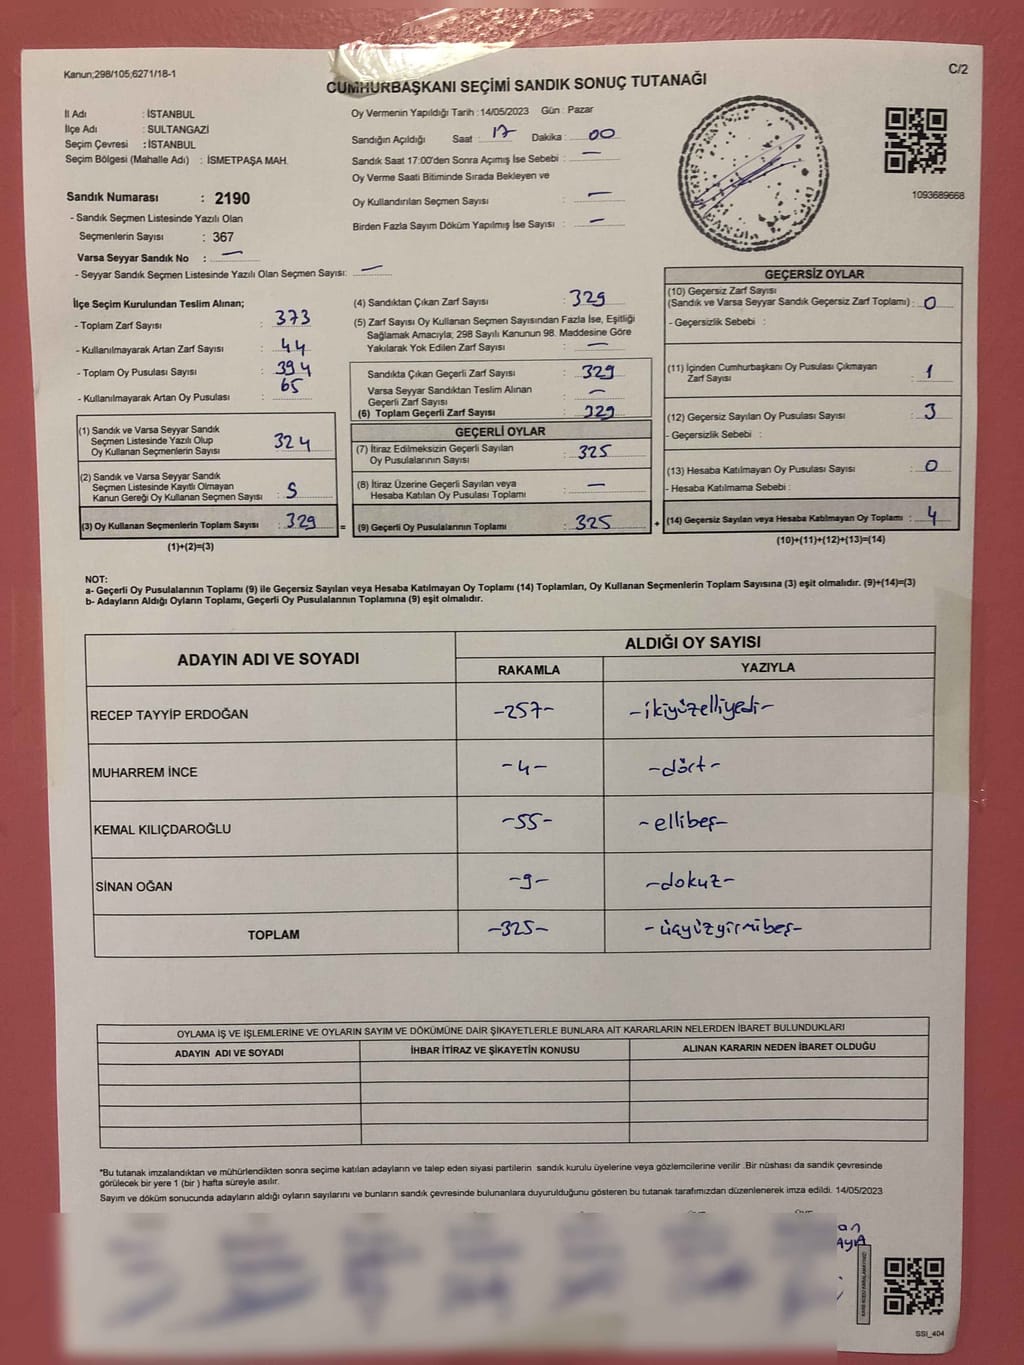 Kanun;298/105;6271/18-1
C/2
CUMHURBAŞKANI SEÇİMİ SANDIK SONUÇ TUTANAĞI
İl Adı : İSTANBUL
İlçe Adı : SULTANGAZİ
Seçim Çevresi : İSTANBUL
Seçim Bölgesi (Mahalle Adı) : İSMETPAŞA MAH.
Sandık Numarası : 2190
- Sandık Seçmen Listesinde Yazılı Olan
Seçmenlerin Sayısı : 367
Varsa Seyyar Sandık No : —
- Seyyar Sandık Seçmen Listesinde Yazılı Olan Seçmen Sayısı: —
Oy Vermenin Yapıldığı Tarih : 14/05/2023 Gün : Pazar
Sandığın Açıldığı Saat : 17 Dakika : 00
Sandık Saat 17:00'den Sonra Açımış İse Sebebi : —
Oy Verme Saati Bitiminde Sırada Bekleyen ve
Oy Kullandırılan Seçmen Sayısı : —
Birden Fazla Sayım Döküm Yapılmış İse Sayısı : —
1093689668
İlçe Seçim Kurulundan Teslim Alınan;
- Toplam Zarf Sayısı : 373
- Kullanılmayarak Artan Zarf Sayısı : 44
- Toplam Oy Pusulası Sayısı : 394
- Kullanılmayarak Artan Oy Pusulası : 65
(1) Sandık ve Varsa Seyyar Sandık
Seçmen Listesinde Yazılı Olup
Oy Kullanan Seçmenlerin Sayısı : 324
(2) Sandık ve Varsa Seyyar Sandık
Seçmen Listesinde Kayıtlı Olmayan
Kanun Gereği Oy Kullanan Seçmen Sayısı : 5
(3) Oy Kullanan Seçmenlerin Toplam Sayısı : 329 =
(1)+(2)=(3)
(4) Sandıktan Çıkan Zarf Sayısı : 329
(5) Zarf Sayısı Oy Kullanan Seçmen Sayısından Fazla İse, Eşitliği
Sağlamak Amacıyla; 298 Sayılı Kanunun 98. Maddesine Göre
Yakılarak Yok Edilen Zarf Sayısı : —
Sandıkta Çıkan Geçerli Zarf Sayısı : 329
Varsa Seyyar Sandıktan Teslim Alınan
Geçerli Zarf Sayısı : —
(6) Toplam Geçerli Zarf Sayısı : 329
GEÇERLİ OYLAR
(7) İtiraz Edilmeksizin Geçerli Sayılan
Oy Pusulalarının Sayısı : 325
(8) İtiraz Üzerine Geçerli Sayılan veya
Hesaba Katılan Oy Pusulası Toplamı : —
(9) Geçerli Oy Pusulalarının Toplamı : 325 +
GEÇERSİZ OYLAR
(10) Geçersiz Zarf Sayısı
(Sandık ve Varsa Seyyar Sandık Geçersiz Zarf Toplamı) : 0
- Geçersizlik Sebebi :
(11) İçinden Cumhurbaşkanı Oy Pusulası Çıkmayan
Zarf Sayısı : 1
(12) Geçersiz Sayılan Oy Pusulası Sayısı : 3
- Geçersizlik Sebebi :
(13) Hesaba Katılmayan Oy Pusulası Sayısı : 0
- Hesaba Katılmama Sebebi :
(14) Geçersiz Sayılan veya Hesaba Katılmayan Oy Toplamı : 4
(10)+(11)+(12)+(13)=(14)
NOT:
a- Geçerli Oy Pusulalarının Toplamı (9) ile Geçersiz Sayılan veya Hesaba Katılmayan Oy Toplamı (14) Toplamları, Oy Kullanan Seçmenlerin Toplam Sayısına (3) eşit olmalıdır. (9)+(14)=(3)
b- Adayların Aldığı Oyların Toplamı, Geçerli Oy Pusulalarının Toplamına (9) eşit olmalıdır.
ADAYIN ADI VE SOYADI
ALDIĞI OY SAYISI
RAKAMLA YAZIYLA
RECEP TAYYİP ERDOĞAN -257- -ikiyüzelliyedi-
MUHARREM İNCE -4- -dört-
KEMAL KILIÇDAROĞLU -55- -ellibeş-
SİNAN OĞAN -9- -dokuz-
TOPLAM -325- -üçyüzyirmibeş-
OYLAMA İŞ VE İŞLEMLERİNE VE OYLARIN SAYIM VE DÖKÜMÜNE DAİR ŞİKAYETLERLE BUNLARA AİT KARARLARIN NELERDEN İBARET BULUNDUKLARI
ADAYIN ADI VE SOYADI İHBAR İTİRAZ VE ŞİKAYETİN KONUSU ALINAN KARARIN NEDEN İBARET OLDUĞU
*Bu tutanak imzalandıktan ve mühürlendikten sonra seçime katılan adayların ve talep eden siyasi partilerin sandık kurulu üyelerine veya gözlemcilerine verilir .Bir nüshası da sandık çevresinde
görülecek bir yere 1 (bir ) hafta süreyle asılır.
Sayım ve döküm sonucunda adayların aldığı oyların sayılarını ve bunların sandık çevresinde bulunanlara duyurulduğunu gösteren bu tutanak tarafımızdan düzenlenerek imza edildi. 14/05/2023
SSI_404